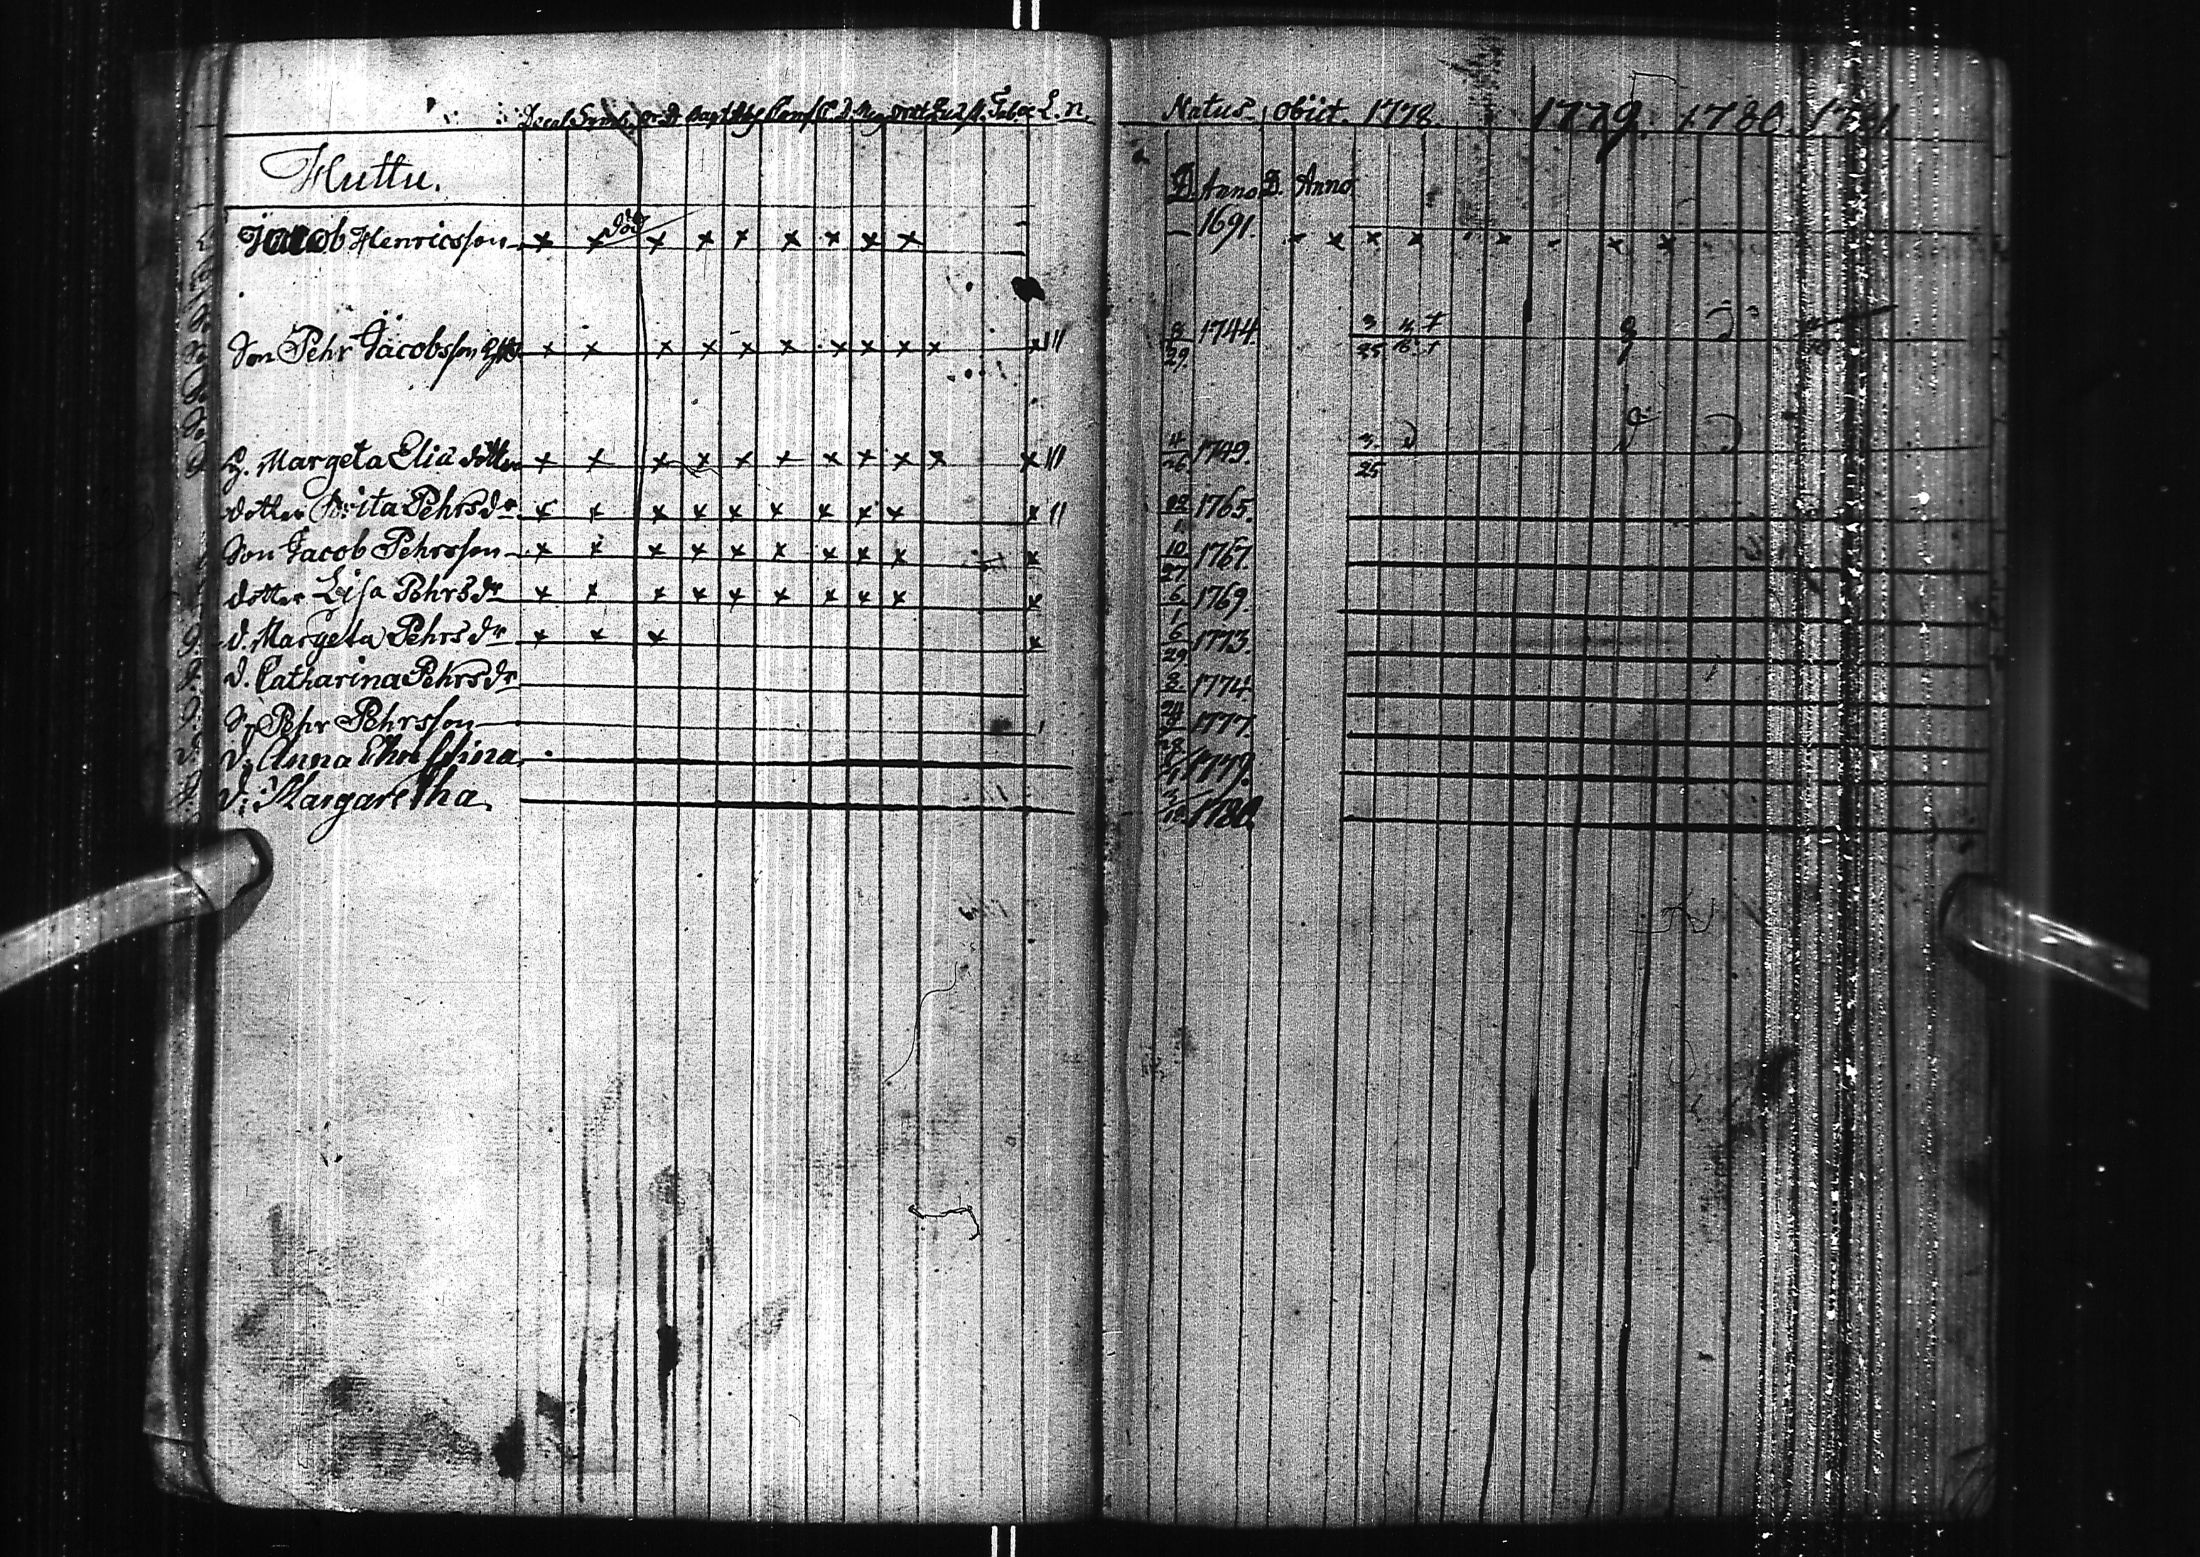 Decal. Symb. Or D. Bapt. Abs. Conf. C. D. L. n.
Huttu.
Jacob Henricsson död
Son Pehr Jacobsson
H. Margeta Eliæ dotter
dotter Brita Pehrs dr
Son Jacob Pehrsson
dotter Lisa Pehrs dr
d. Margeta Pehrs dr
d. Catharina Pehrs dr
S. Pehr Pehrsson
d. Anna Christina
d: Margaretha
Natus. obiit. 1778. 1779. 1780. 1781
D. Anno D. Anno
1691.
29. 1744 3 25
4 26 1749. 3. 25
12 1. 1765.
10 27 1767.
6 1 1769.
6 29 1773.
3. 24 1774.
1777.
1779.
1780.